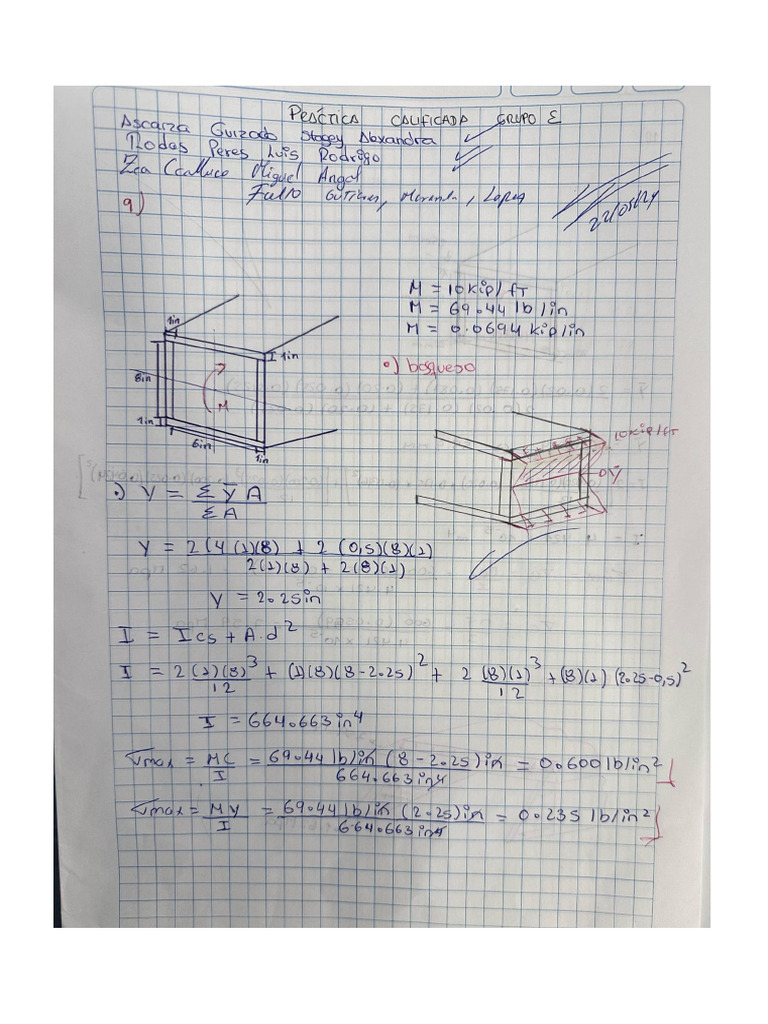 PRÁCTICA CALIFICADA GRUPO E
Ascarza Guizado Stacey Alexandra
Rodas Peres Luis Rodrigo
Zea Ccalluco Miguel Angel
Falto Gutierrez, Miranda, Lopez
22/05/24
9)
M = 10 kip/ft
M = 69.44 lb/in
M = 0.0694 kip/in
•) bosquejo
1in
I 1in
8in
M
1in I
6in
1in
10 kip/ft
0Y
•) Y = Σ ȳ A / Σ A
Y = 2(4(1)(8) + 2(0,5)(8)(1) / 2(1)(8) + 2(8)(1)
Y = 2.25in
I = Ics + A.d²
I = 2(1)(8)³/12 + (1)(8)(8-2.25)² + 2(8)(1)³/12 + (8)(1)(2.25-0,5)²
I = 664.663in⁴
σmax = MC/I = 69.44 lb/in (8-2.25)in / 664.663in⁴ = 0.600 lb/in²
σmax = MY/I = 69.44 lb/in (2.25)in / 664.663in⁴ = 0.235 lb/in²